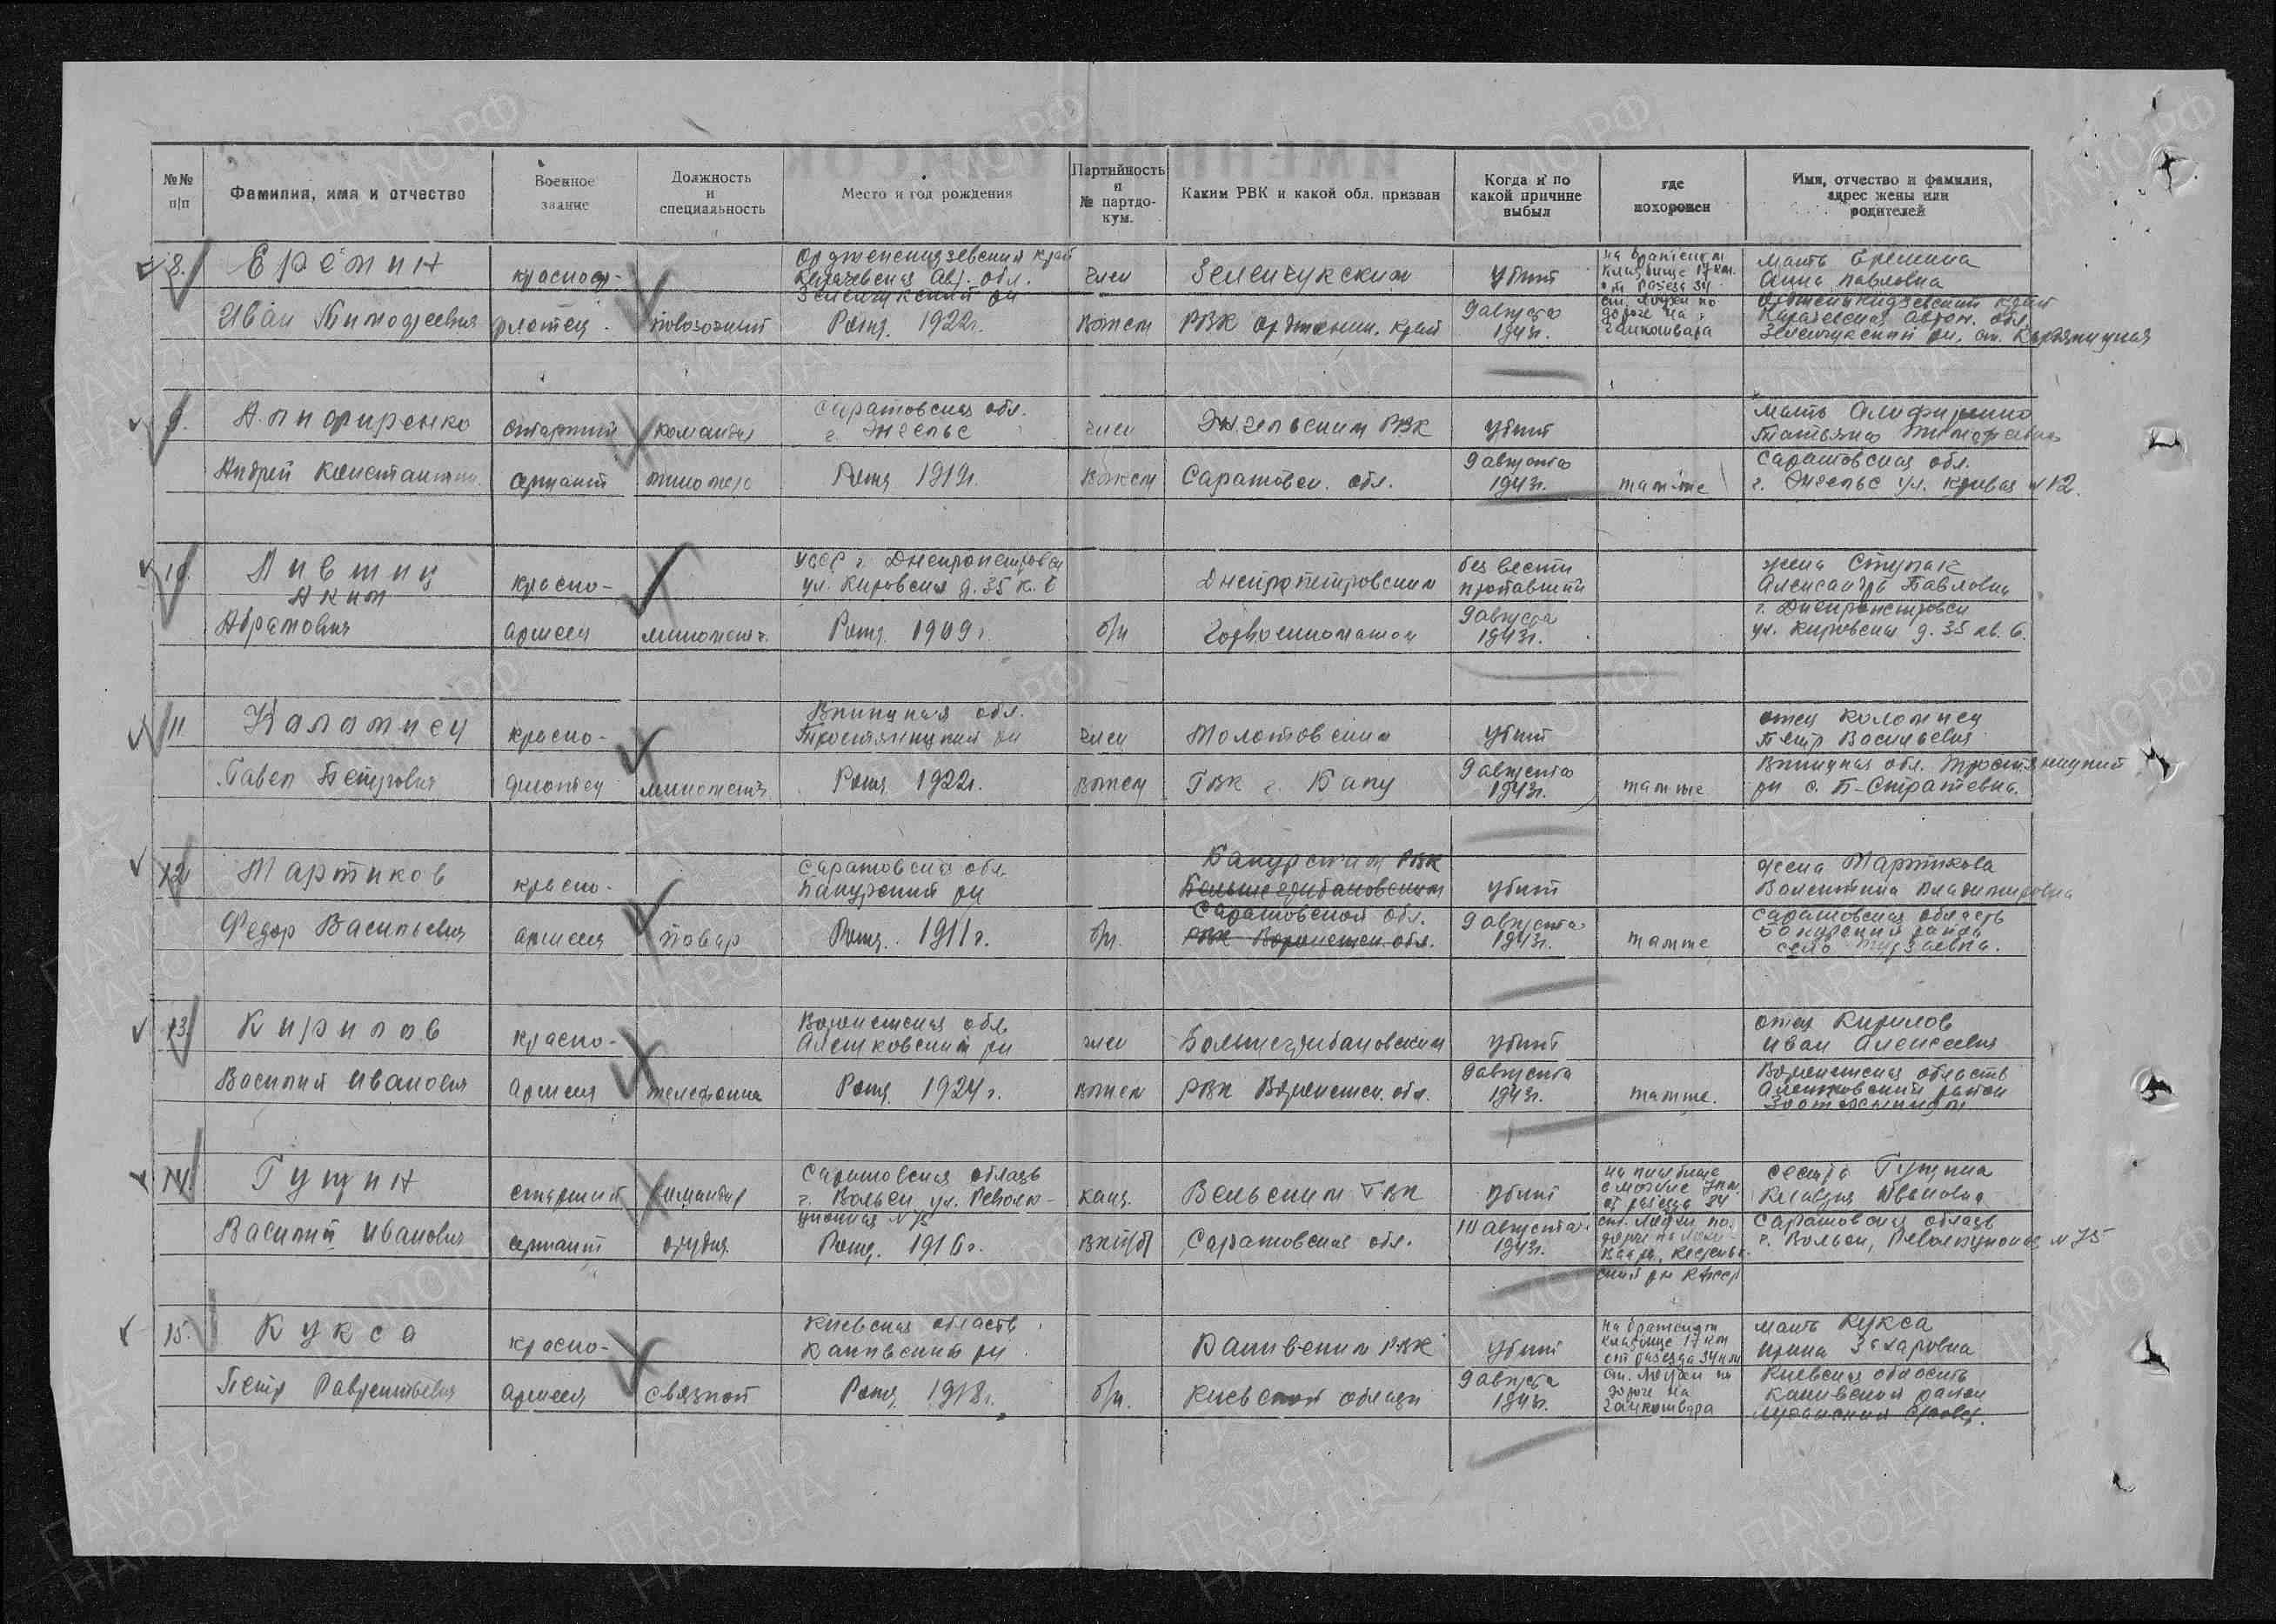 №№ п/п
Фамилия, имя и отчество
Военное звание
Должность и специальность
Место и год рождения
Партийность и № партдокум.
Каким РВК и какой обл. призван
Когда и по какой причине выбыл
где похоронен
Имя, отчество и фамилия, адрес жены или родителей
8.
Еремин
Иван Тимофеевич
красно-
флотец
повозочный
Зеленчукский рн
Рожд. 1922г.
член
влксм
Зеленчукским
РВК Орджоник. край
убит
9 августа
1943г.
на братском
кладбище 17 км.
от разъезд 34
дороге на
мать Еремина
Анна Павловна
9.
Андрей Константин.
старший
сержант
командир
миномета
Саратовская обл.
г. Энгельс
Рожд 1919г.
член
влксм
Энгельским РВК
Саратовск. обл.
убит
9 августа
1943г.
там же
мать
Саратовская обл.
г. Энгельс ул.
10.
Лившиц
Аким
Абрамович
красно-
армеец
минометч.
УССР г. Днепропетровск
ул. Кировская д. 35 к. 6
Рожд. 1909г.
б/п
Днепропетровским
Горвоенкоматом
без вести
пропавший
9 августа
1943г.
жена Ступак
Александра Павловна
г. Днепропетровск
ул. Кировская д. 35 кв. 6.
11
Коломиец
Павел Петрович
красно-
флотец
минометч.
Виницкая обл.
Тростянецкий рн
Рожд 1922г.
член
влксм
Молотовским
ГВК г. Баку
убит
9 августа
1943г.
там же
отец Коломиец
Петр Васильевич
Виницкая обл. Тростянецкий
рн с.
12
Мартиков
Федор Васильевич
красно-
армеец
повар
Саратовская обл.
рн
Рожд. 1911г.
б/п.
РВК
Большегрибановским
Саратовской обл.
РВК Воронежск. обл.
убит
9 августа
1943г.
там же
жена Мартикова
Валентина Владимировна
Саратовская область
село
13.
Кирилов
Василий Иванович
красно-
армеец
телефонист
Воронежская обл.
Алешковский рн
Рожд. 1924г.
член
влксм
Большегрибановским
РВК Воронежск. обл.
убит
9 августа
1943г.
там же.
отец Кирилов
Иван Алексеевич
Воронежская область
Алешковский район
14.
Гущин
Василий Иванович
старший
сержант
командир
орудия.
Саратовская область
г. Вольск ул. Револю-
ционная № 75
Рожд. 1916г.
канд.
вкп(б)
Вольским ГВК
Саратовская обл.
убит
10 августа
1943г.
сестра Гущина
Ивановна
Саратовская область
г. Вольск, Революционая № 75
15.
Кукса
Петр Лаврентьевич
красно-
армеец
связной
Киевская область
Каневский рн
Рожд. 1918г.
б/п.
Каневским РВК
Киевской области
убит
9 августа
1943г.
на братском
кладбище 17 км
от разъезда 34 км
дороге на
мать Кукса
Ирина Захаровна
Киевская область
Каневский район